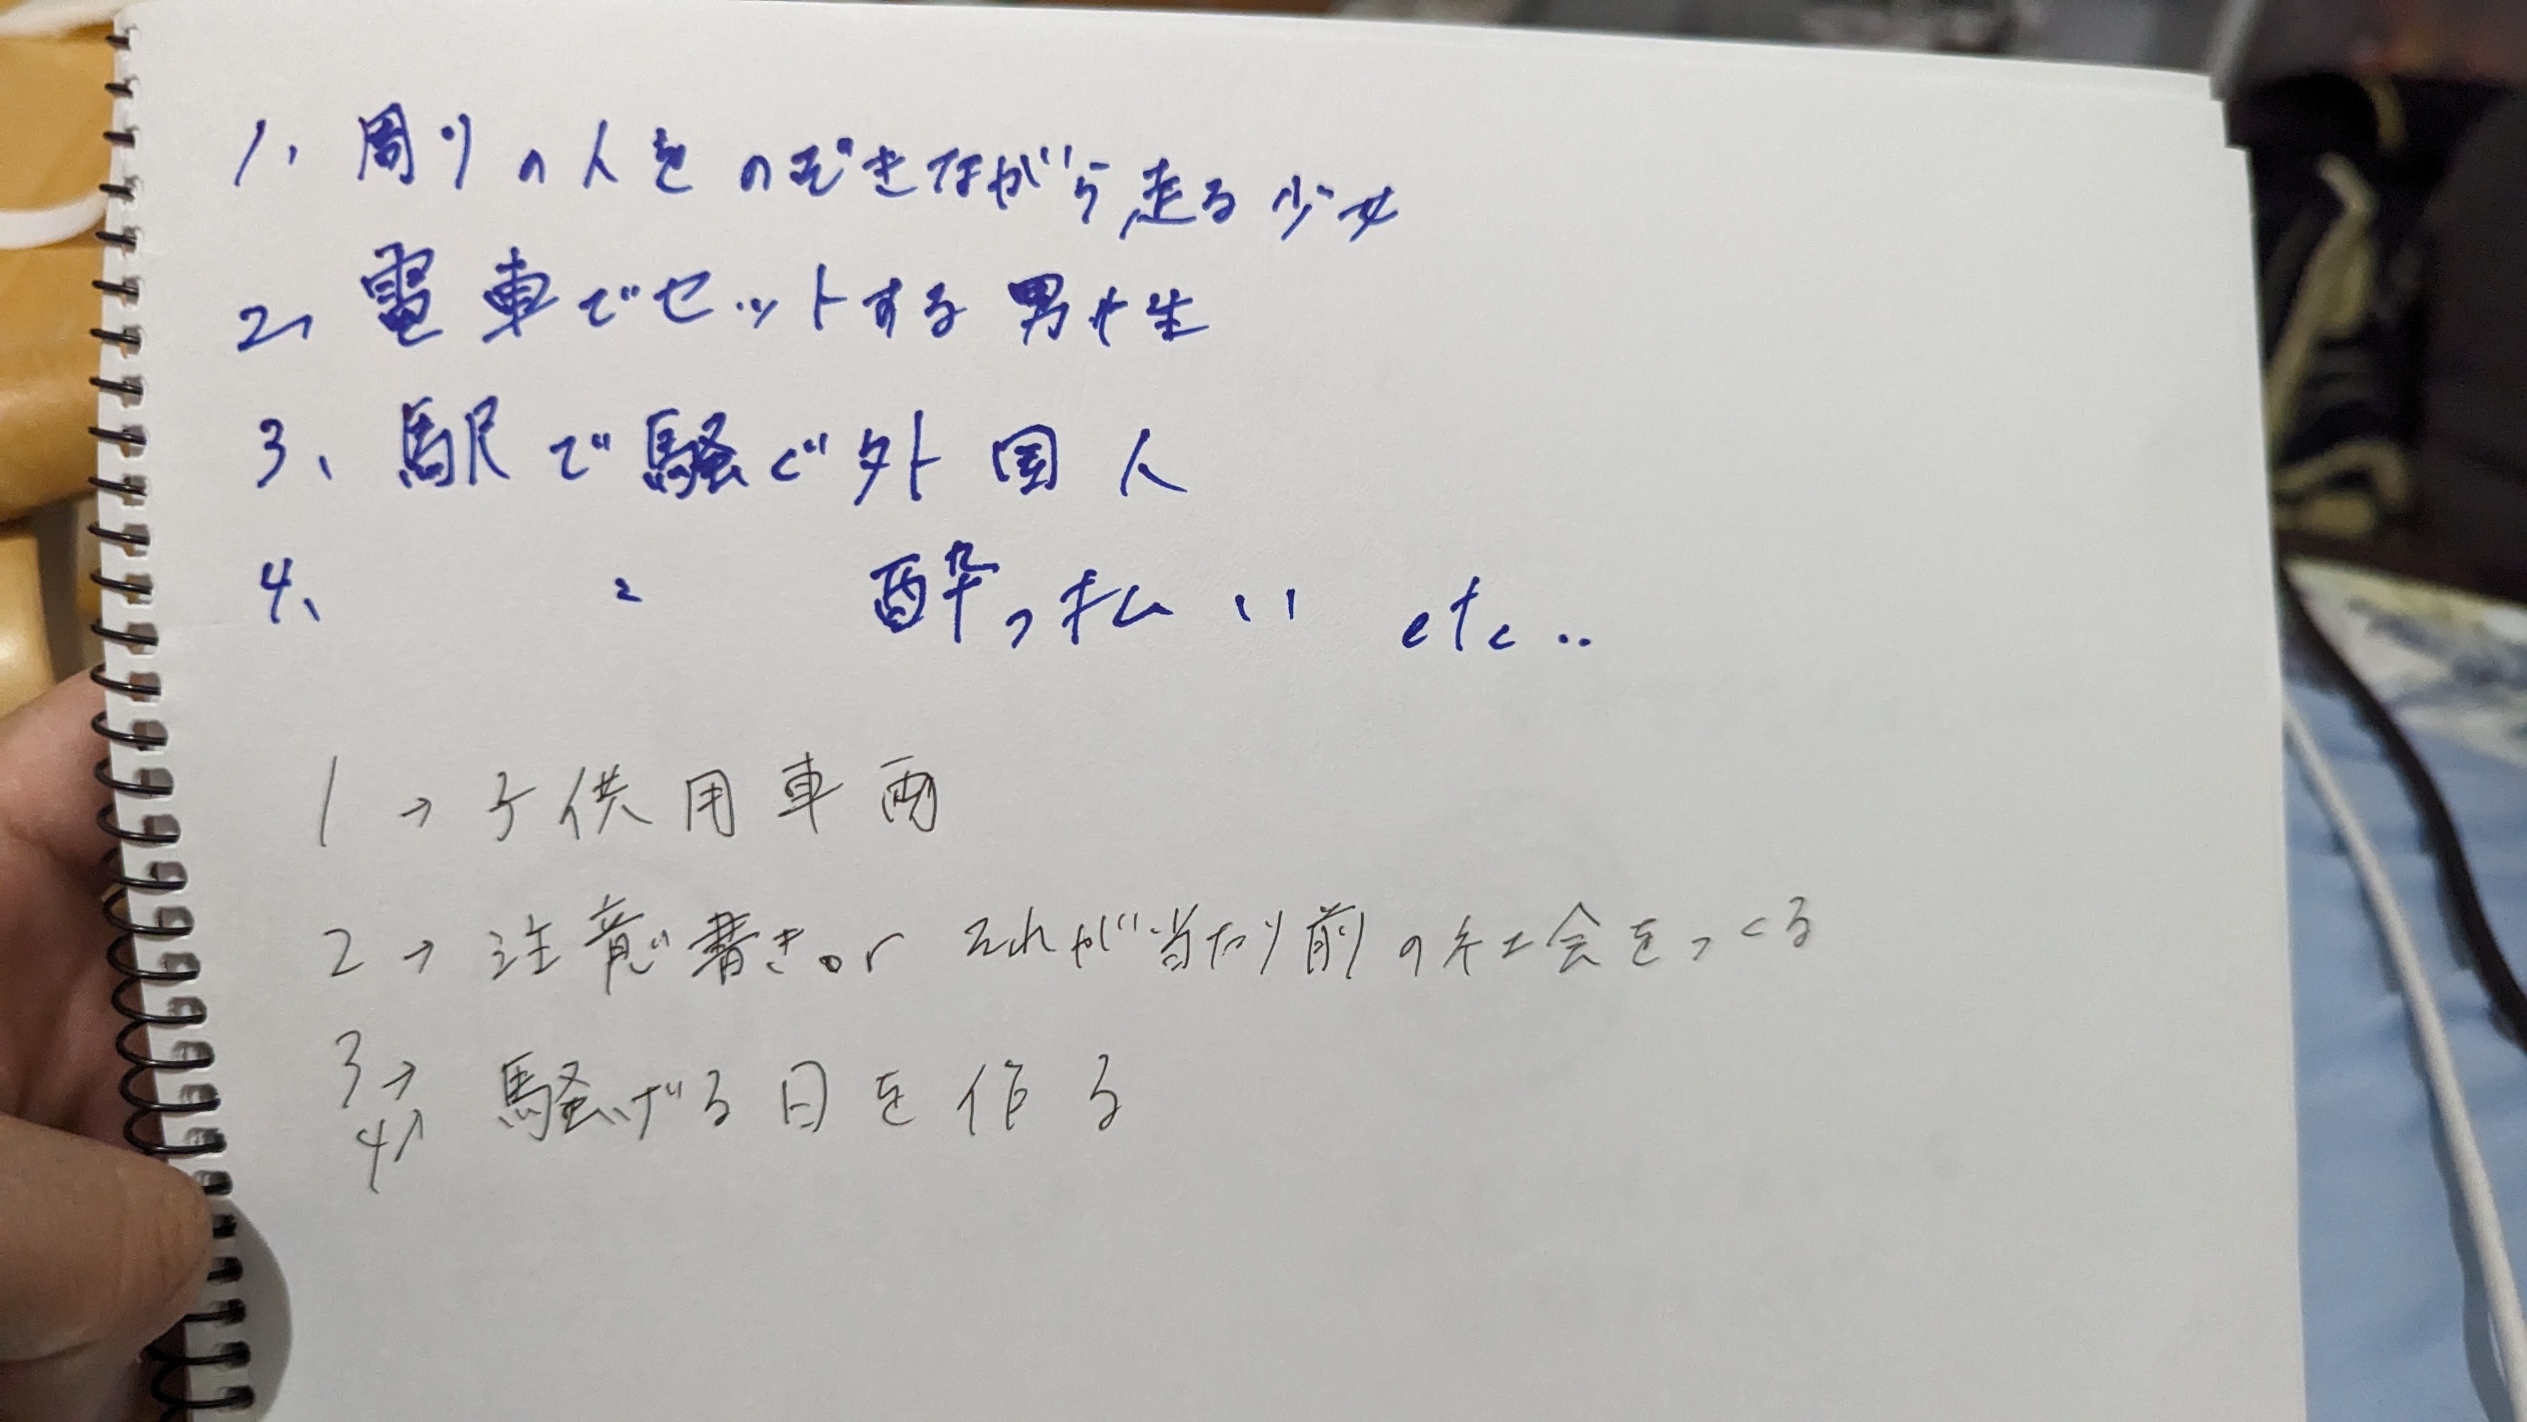 1、周りの人をのぞきながら走る少女
2、電車でセットする男性
3、駅で騒ぐ外国人
4、 〃 酔っ払い etc..
1→子供用車両
2→注意書き or それが当たり前の社会をつくる
3→
4→ 騒げる日を作る